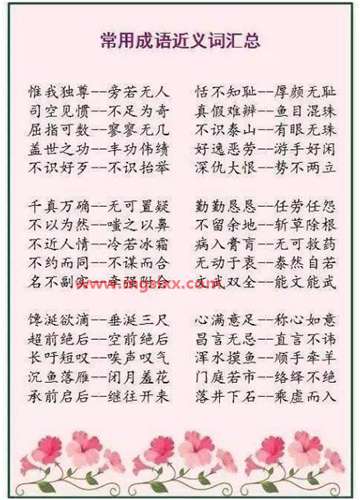 常用成语近义词汇总
惟我独尊--旁若无人 恬不知耻--厚颜无耻
司空见惯--不足为奇 真假难辨--鱼目混珠
屈指可数--寥寥无几 不识泰山--有眼无珠
盖世之功--丰功伟绩 好逸恶劳--游手好闲
不识好歹--不识抬举 深仇大恨--势不两立
千真万确--无可置疑 勤勤恳恳--任劳任怨
不以为然--嗤之以鼻 不留余地--斩草除根
不近人情--冷若冰霜 病入膏肓--无可救药
不约而同--不谋而合 无动于衷--泰然自若
名不副 双全--能文能武
馋涎欲滴--垂涎三尺 心满意足--称心如意
超前绝后--空前绝后 昌言无忌--直言不讳
长吁短叹--唉声叹气 浑水摸鱼--顺手牵羊
沉鱼落雁--闭月羞花 门庭若市--络绎不绝
承前启后--继往开来 落井下石--乘虚而入